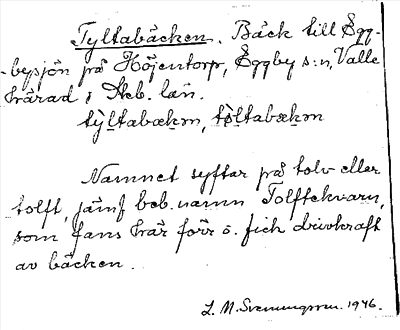 Tyltabäcken. Bäck till Egg-
-bysjön på Höjentorp, Eggby s:n, Valle
härad i Skb. län.
tỳltabækm, tøltabækm
Namnet syftar på tolv eller
tolft, jämf beb.namn Tolftekvarn,
som fans här förr o. fick drivkraft
av bäcken.
L. M. Svenungsson. 1946.